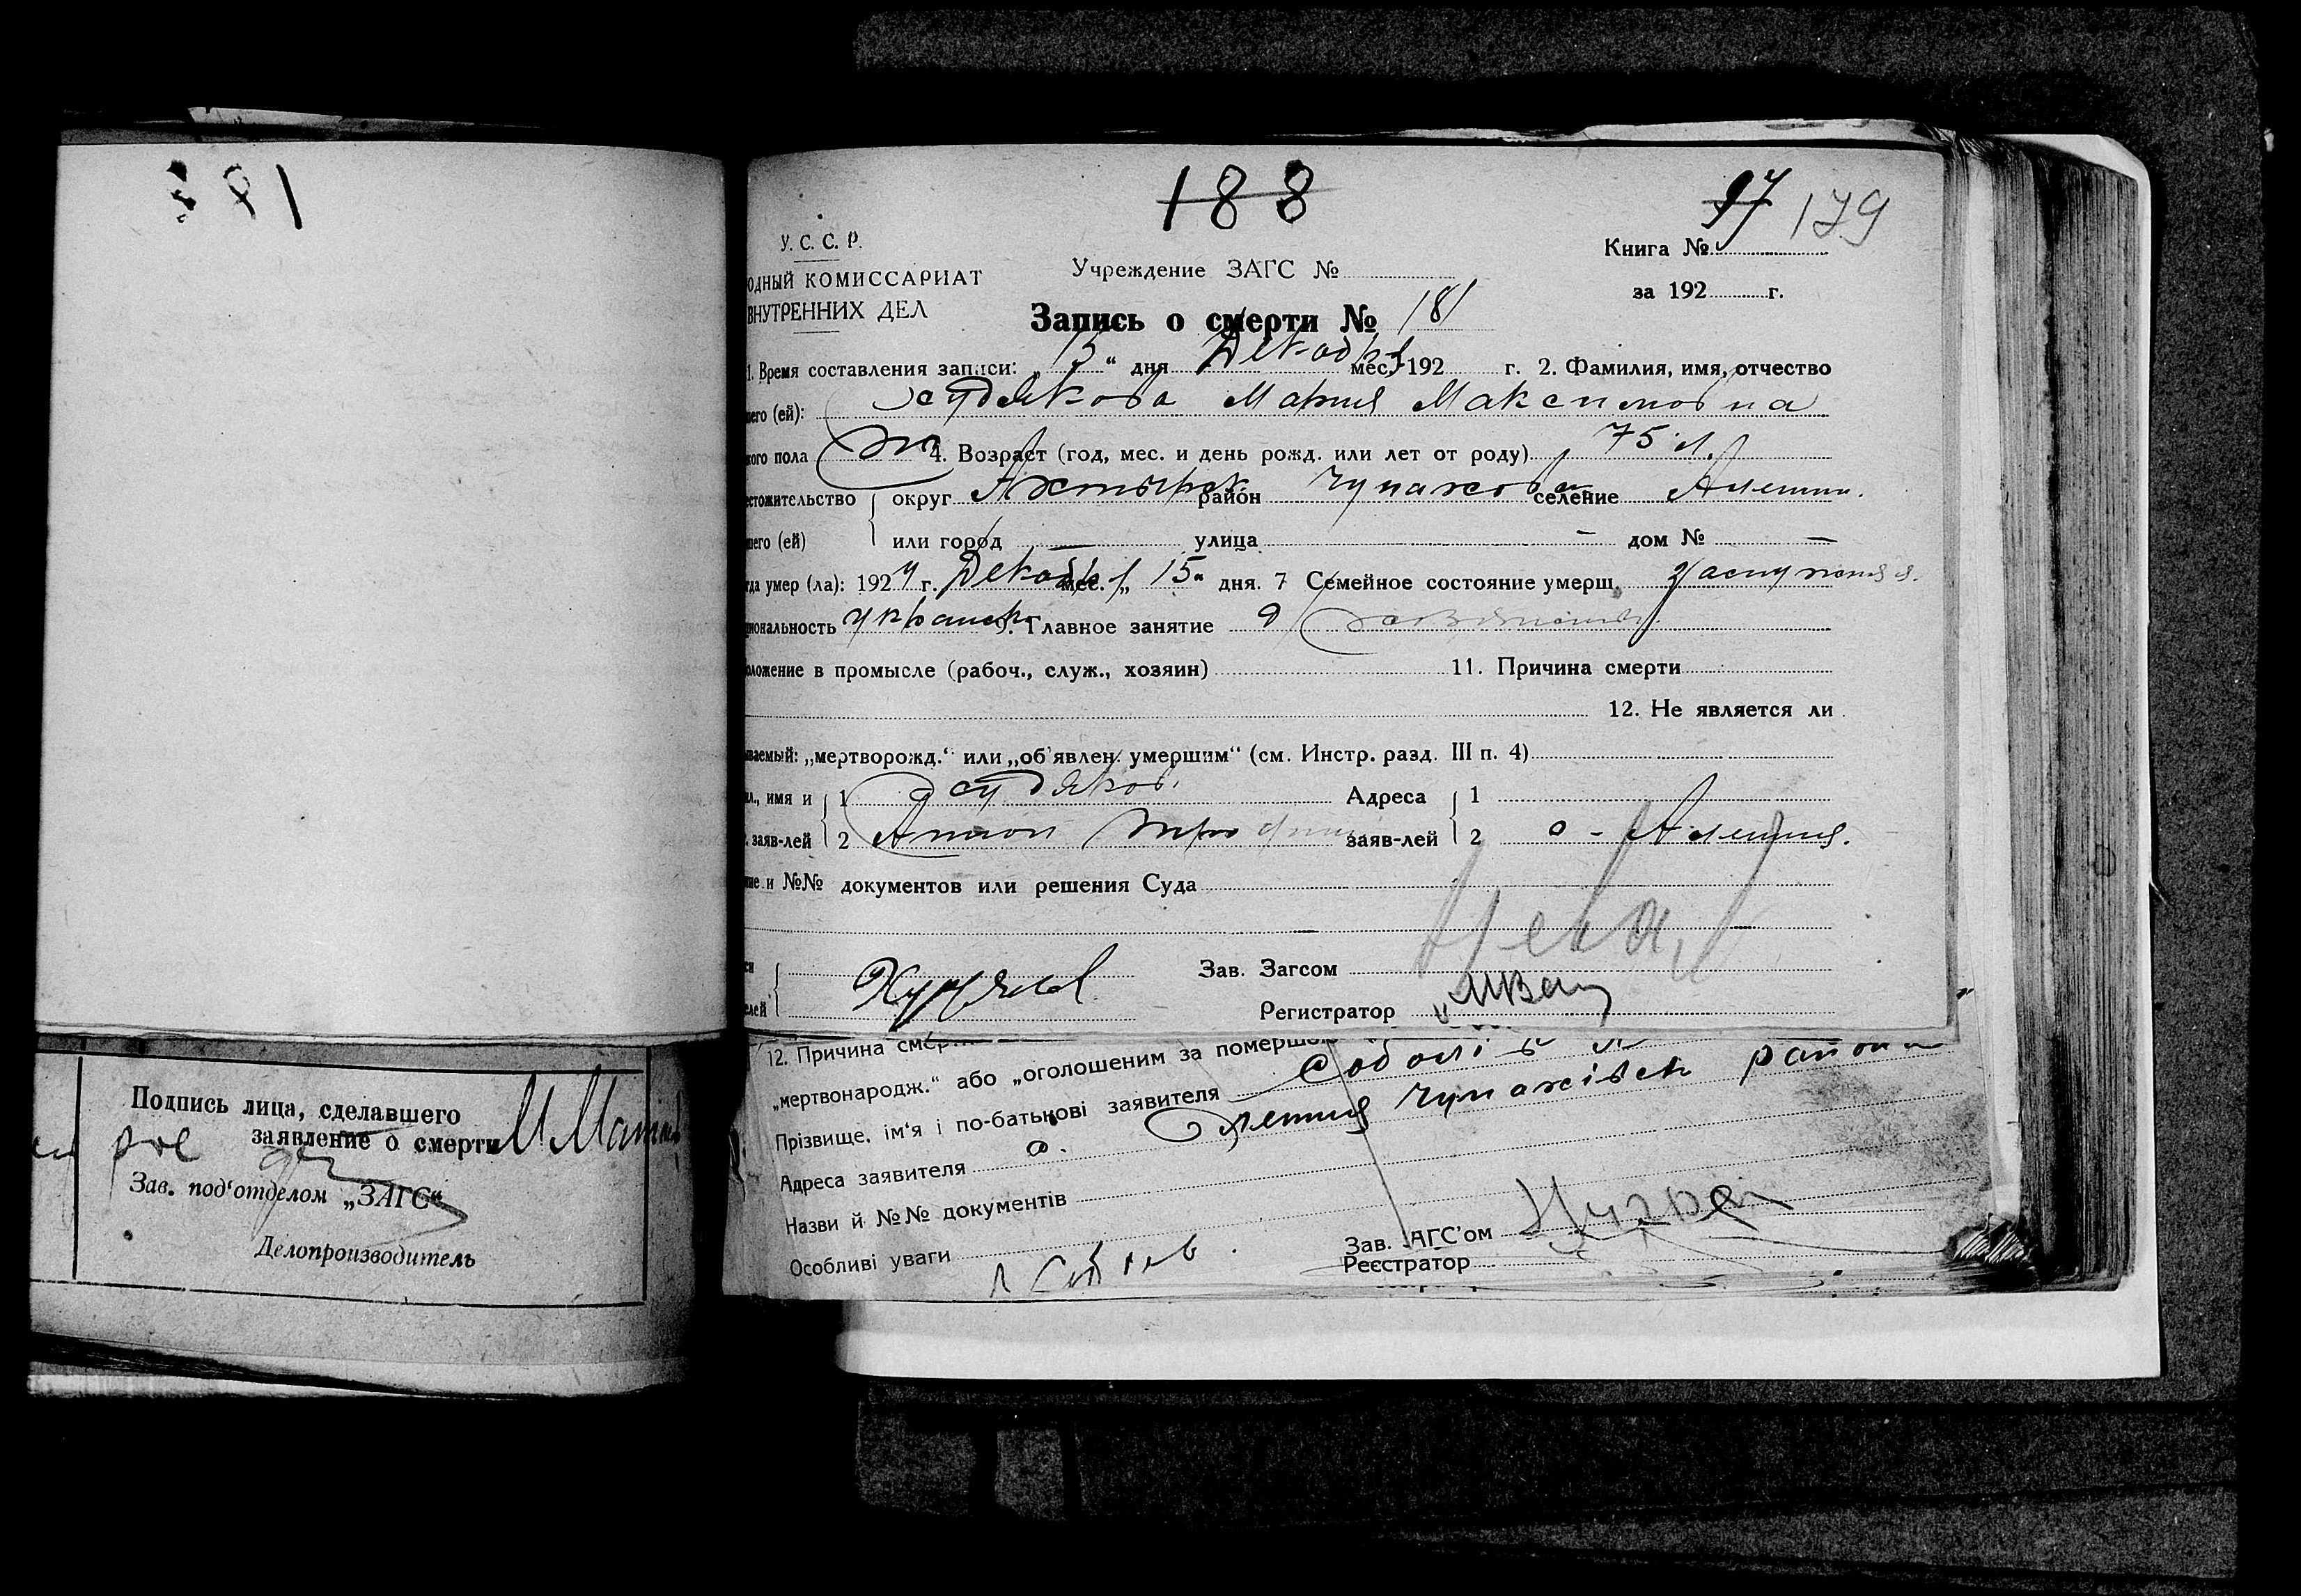 188
97 179
У. С. С. Р.
Книга №
ОДНЫЙ КОМИССАРИАТ
Учреждение ЗАГС №
за 192 г.
ВНУТРЕННИХ ДЕЛ
Запись о смерти № 181
1. Время составления записи: „15“ дня Декабря мес. 192 г. 2. Фамилия, имя, отчество
шего (ей): Худякова Мария Максимовна
кого пола ж 4. Возраст (год, мес. и день рожд. или лет от роду) 75 л.
естожительство округ Ахтырск район Чупахов селение Алешн.
шего (ей) или город — улица — дом № —
гда умер (ла): 1924 г. Декабря мес. „15“ дня. 7 Семейное состояние умерш. замужняя.
циональность украинск 9. Главное занятие
оложение в промысле (рабоч., служ., хозяин) 11. Причина смерти
12. Не является ли
ываемый: „мертворожд.“ или „об'явлен. умершим“ (см. Инстр. разд. III п. 4)
ил., имя и 1 Худяков Адреса 1
. заяв-лей 2 Антон заяв-лей 2 с - Алешня.
ние и №№ документов или решения Суда
Зав. Загсом
елей Худяков Регистратор
12. Причина смер
„мертвонародж.“ або „оголошеним за померш
Прізвище, ім'я і по-батькові заявителя
Адреса заявителя с. Олешня Чупахівск района
Назви й №№ документів
Особливі уваги
Зав. АГС'ом
Реєстратор
Подпись лица, сделавшего
заявление о смерти
Зав. под'отделом „ЗАГС“
Делопроизводитель